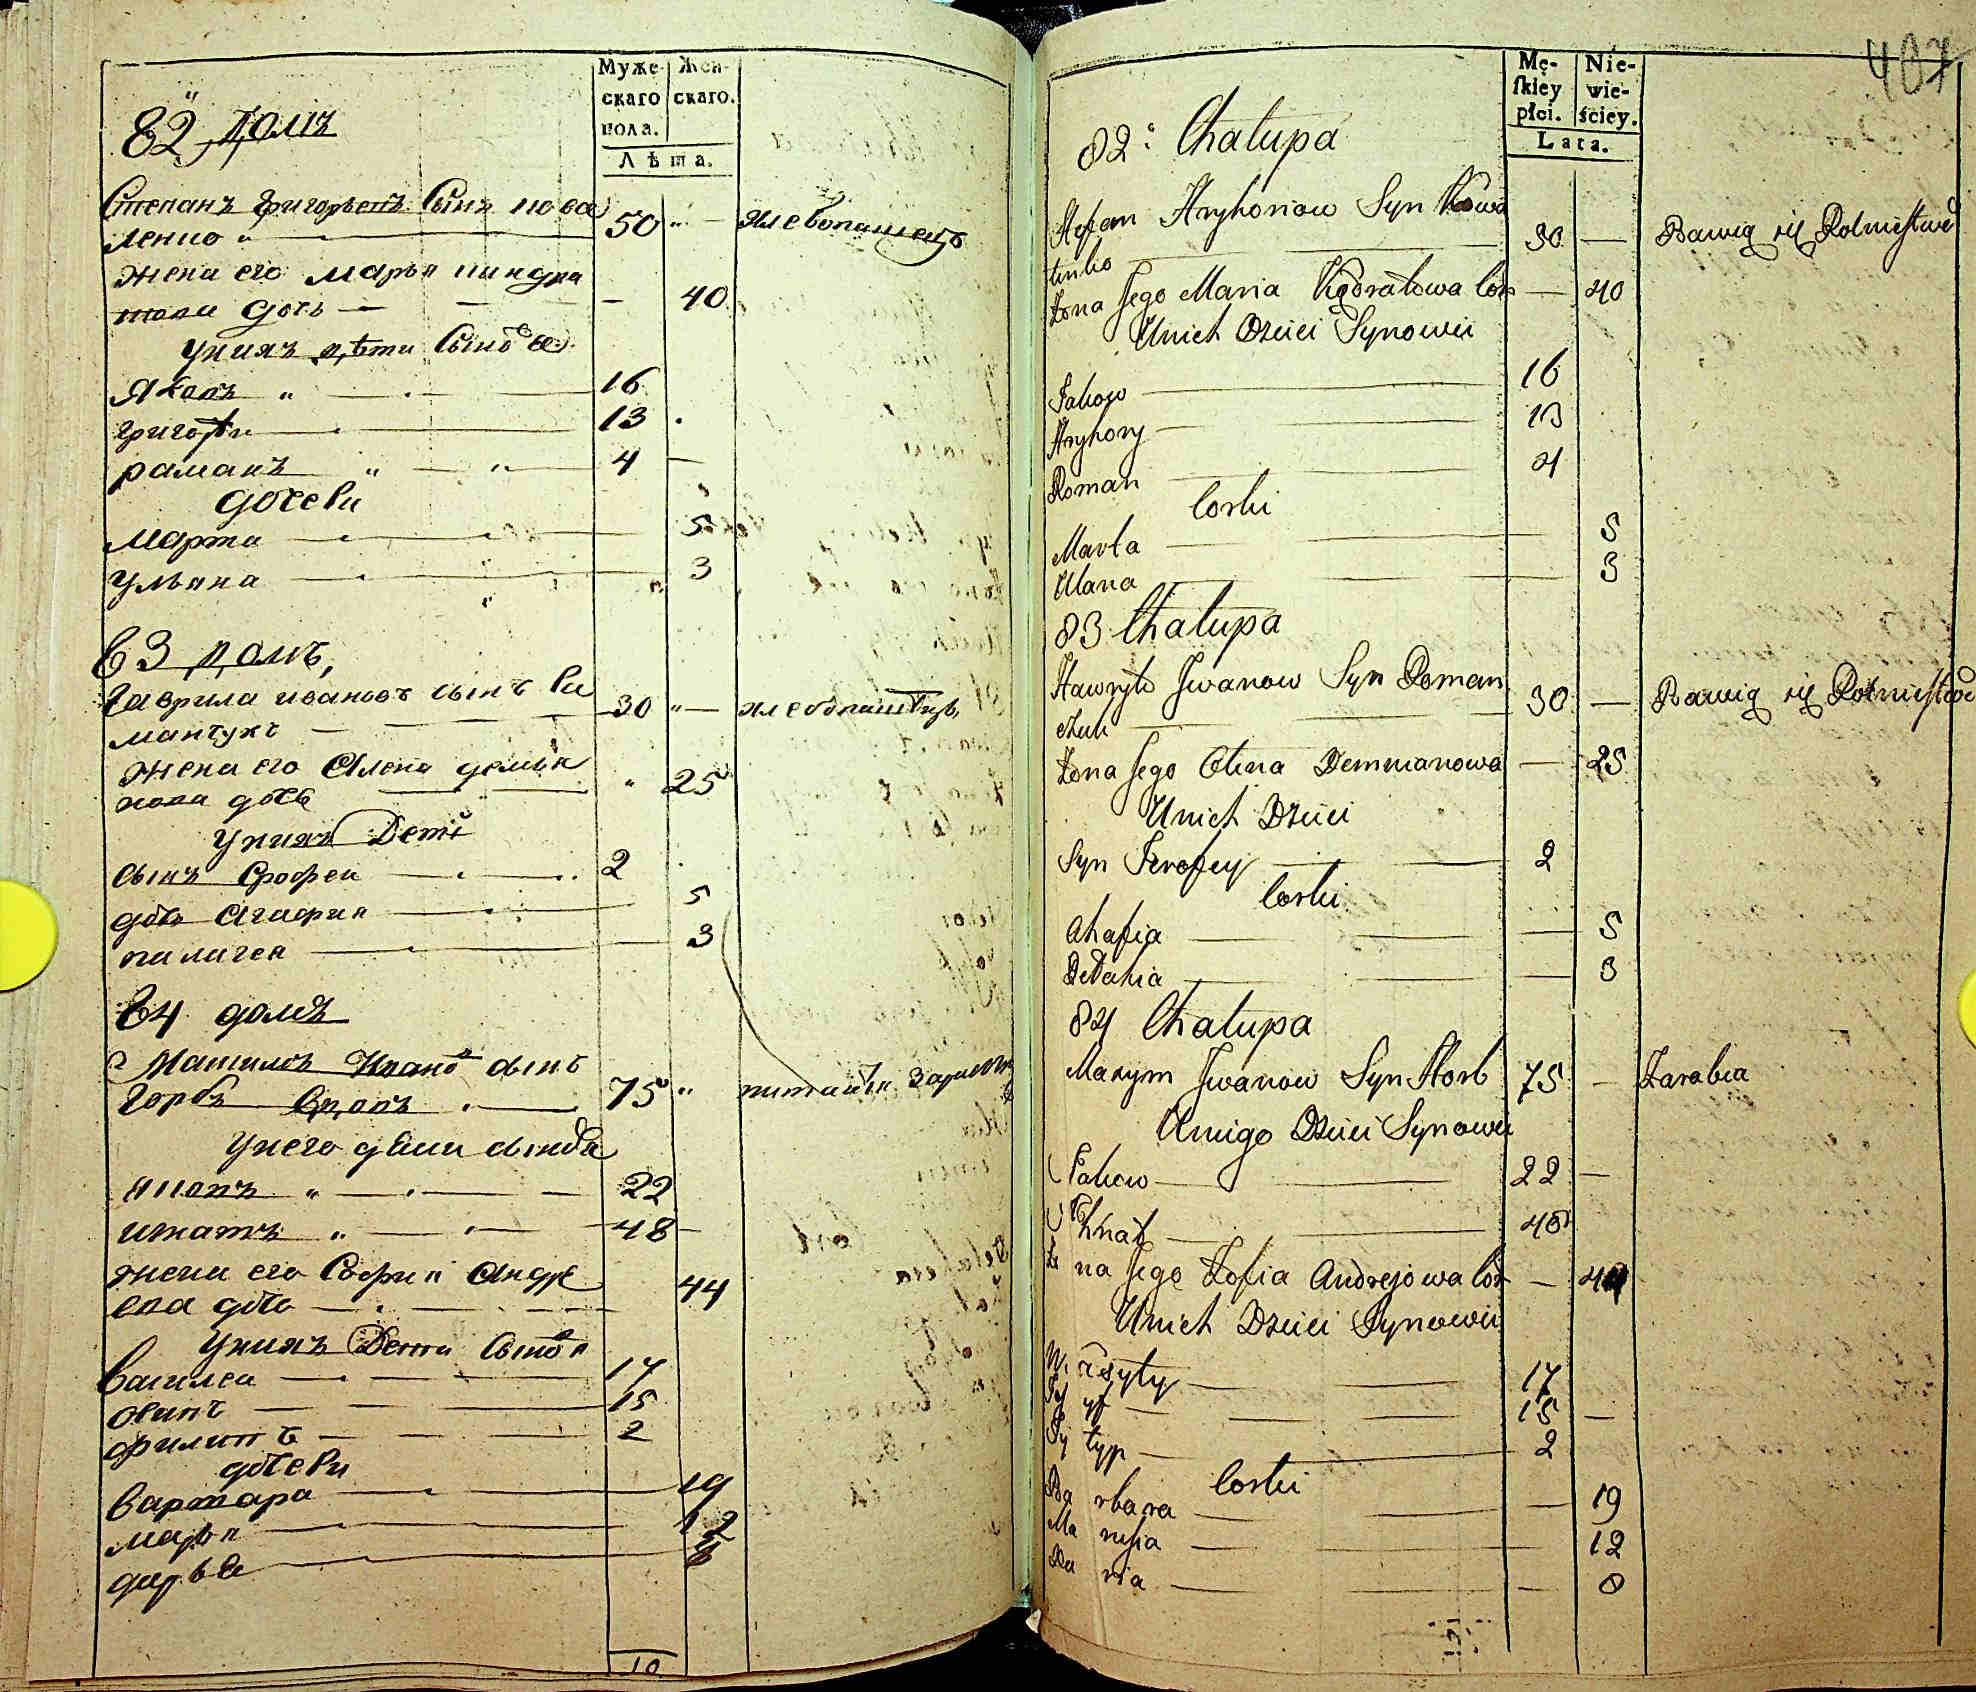 Муже-
скаго
пола.
Жен-
скаго.
Лѣта.
82 домъ
Степанъ Григорьевъ Сынъ Кова
ленко 50 — хлебопашецъ
жена его Марья кондра
това дочь — 40
у нихъ дѣти Сыновья
Яковъ 16
григори 13
раманъ 4
дочеви
марта 5
ульяна 3
83 домъ,
Гаврила ивановъ сынъ Ра
манчукъ 30 — хлебопашецъ
жена его Алена демья
нова дочь 25
у нихъ Дети
сынъ Ерофеи 2
дочь Агафия 5
палагея 3
84 домъ
Максимъ Ивановъ сынъ
Горбъ вдовъ 75
у него дети сыновья
яковъ 22
игнатъ 48
жена его София Андре
ева дочь 44
у нихъ Дети Сыновя
василеи 17
осипъ 15
филипъ 2
дочеви
варвара 19
марья 12
дарья 8
10
407
Mę-
skiey
płci.
Nie-
wie-
ściey.
Lata.
82 Chałupa
Stefan Hryhoriow Syn Kowa
linko 50 — Bawią się Rolnictwe
Żona Jego Maria Kądratowa Cór — 40
Unich Dzieci Synowie
Jakow 16
Hryhory 13
Roman 4
Corki
Marta 5
Ulana 3
83 Chałupa
Hawryło Jwanow Syn Roman
czuk 30 — Bawią się Rolnictwe
Żona Jego Olena Demmianowa — 25
Unich Dzieci
Syn Jerofey 2
Corki
Ahafia — 5
Pełahia — 3
84 Chałupa
Maxym Jwanow Syn Horb 75 — Zarabia
Uniego Dzieci Synowie
Jakow 22 —
Yhnat 48
Żona Jego Zofia Andrejowa Cór — 44
Unich Dzieci Synowie
Wasyly 17
Josyf 15 —
Fylyp 2
Corki
Barbara — 19
Marysia — 12
Daria — 8